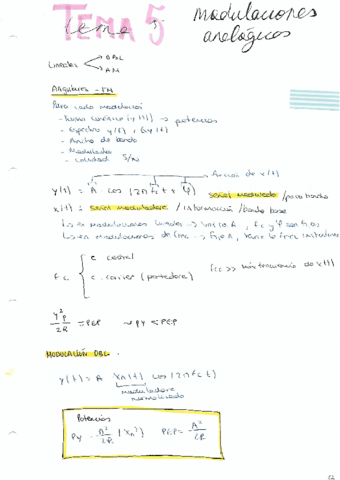 TEMA 5 modulaciones
tema 5 analógicas
Lineales DBL
AM
Angulares - FM
Para cada modulación
- forma (y(t)) → potencia
- Espectro y(f) = Gy(f)
- Ancho de banda
- Modulador
- Calidad S/N
Función de x(t)
y(t) = A cos (2πfc t + φ) señal modulada / paso banda
x(t) = señal moduladora / información / banda base
↳ en modulaciones lineales → varía A, fc y φ son fijos
↳ en modulaciones de → fija A, varía la frec instantánea
fc { c central
c carrier (portadora) fcc >> máx frecuencia de x(t)
y²p / 2R = PEP → py < PEP
MODULACIÓN DBL.
y(t) = A xn(t) cos (2πfc t)
moduladora
normalizada
Potencias
Py = A²/2R (xn²) PEP = A²/2R